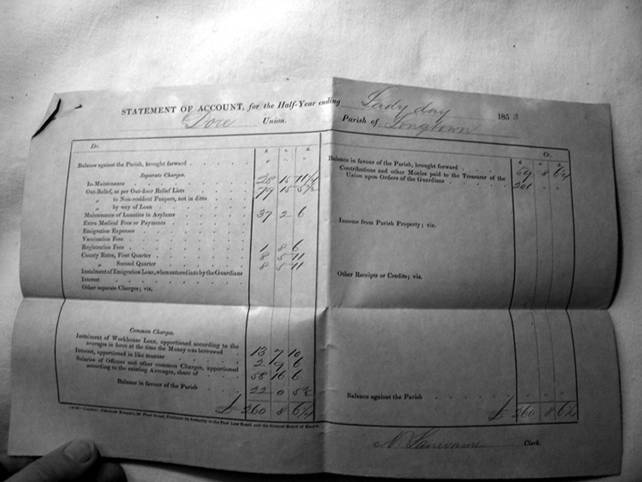 STATEMENT OF ACCOUNT, for the Half-Year ending Lady day 1853
Dore Union. Parish of Longtown
Dr.
£ s. d.
Balance against the Parish, brought forward
Separate Charges.
In-Maintenance 28 15
Out-Relief, as per Out-door Relief Lists 79 15
" to Non-resident Paupers, not in ditto
" by way of Loan
Maintenance of Lunatics in Asylums 37 2 6
Extra Medical Fees or Payments
Emigration Expenses
Vaccination Fees
Registration Fees 1 8 6
County Rates, First Quarter 8 5 11
" Second Quarter 8 5 11
Instalment of Emigration Loan, when entered into by the Guardians
Interest
Other separate Charges; viz.
Common Charges.
Instalment of Workhouse Loan, apportioned according to the
averages in force at the time the Money was borrowed 13 7 10
Interest, apportioned in like manner 2 6
Salaries of Officers and other common Charges, apportioned
according to the existing Averages, share of 58 16 6
Balance in favour of the Parish 22 0 5½
£ 260 8 6½
Cr.
£ s. d.
Balance in favour of the Parish, brought forward 59 8 6½
Contributions and other Monies paid to the Treasurer of the
Union upon Orders of the Guardians 201
Income from Parish Property; viz.
Other Receipts or Credits; viz.
Balance against the Parish
£ 260 8 6½
Clerk.